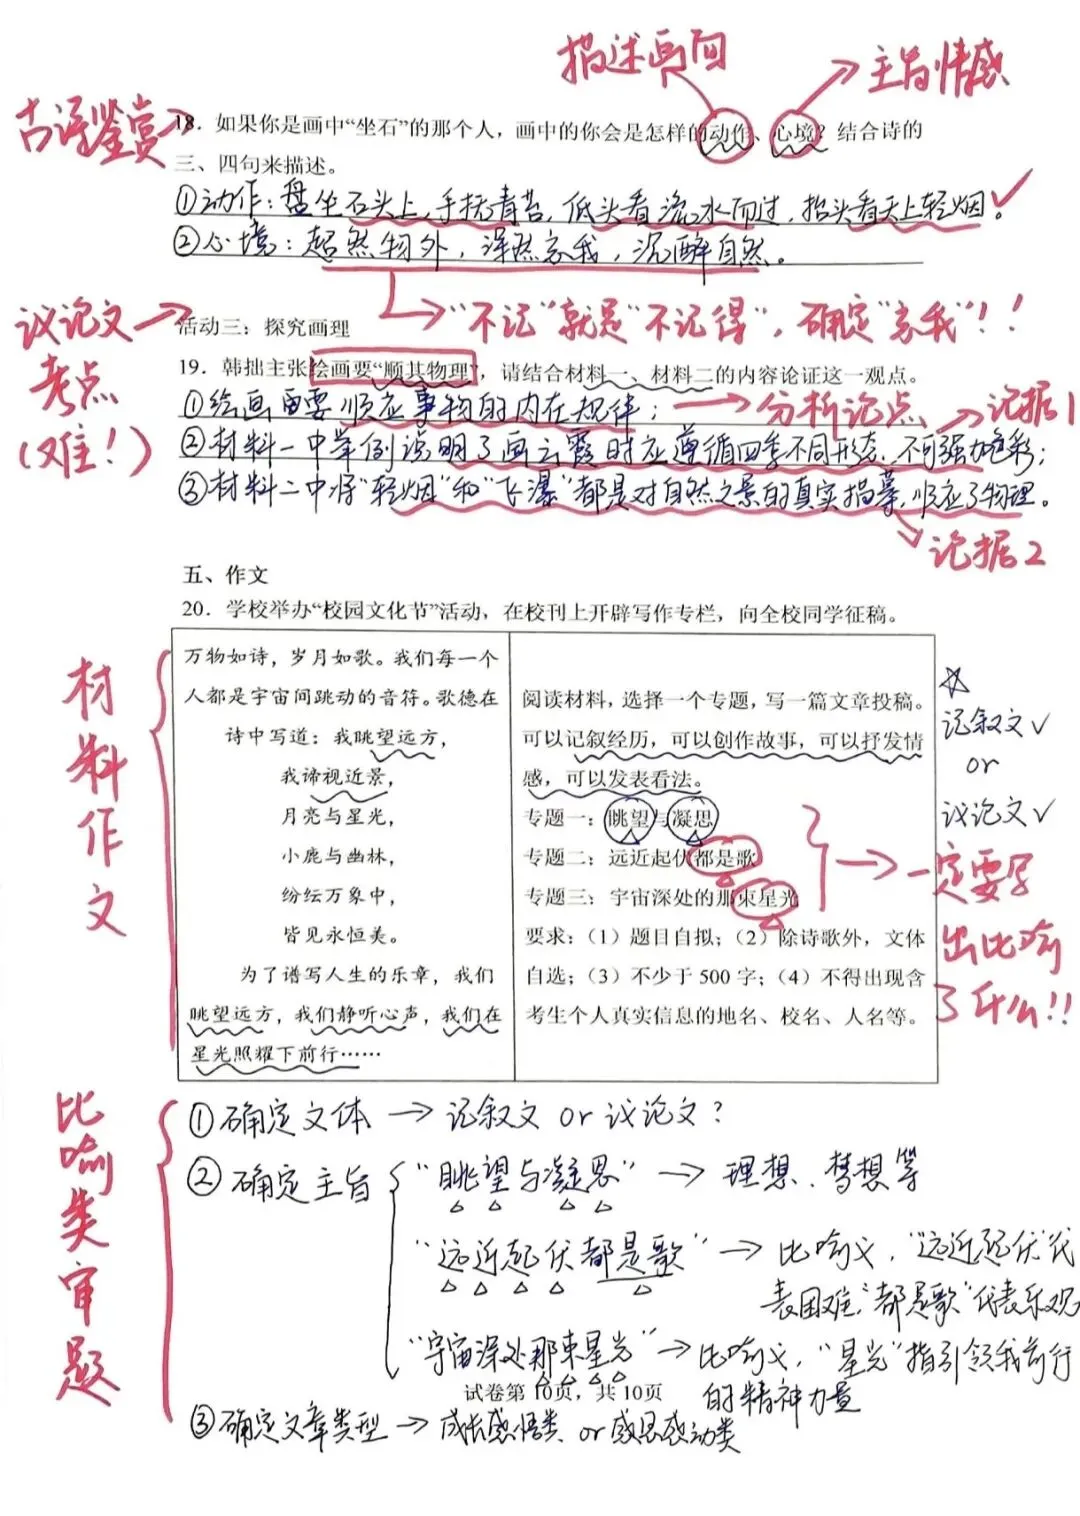 描述画面
主旨情感
古诗鉴赏
18. 如果你是画中“坐石”的那个人，画中的你会是怎样的动作、心境？结合诗的
三、四句来描述。
①动作：盘坐石头上，手抚青苔，低头看流水而过，抬头看天上轻烟。
②心境：超然物外，浑然忘我，沉醉自然。
“不记”就是“不记得”，确定“忘我”！！
议论文
考点
（难！）
活动三：探究画理
19. 韩拙主张绘画要“顺其物理”，请结合材料一、材料二的内容论证这一观点。
①绘画需要顺应事物的内在规律；
分析论点
论据1
②材料一中举例说明了画云霞时应遵循四季不同形态，不可强加色彩；
③材料二中将“轻烟”和“飞瀑”都是对自然之景的真实描摹，顺应了物理。
论据2
五、作文
20. 学校举办“校园文化节”活动，在校刊上开辟写作专栏，向全校同学征稿。
材料作文
万物如诗，岁月如歌。我们每一个
人都是宇宙间跳动的音符。歌德在
诗中写道：我眺望远方，
我谛视近景，
月亮与星光，
小鹿与幽林，
纷纭万象中，
皆见永恒美。
为了谱写人生的乐章，我们
眺望远方，我们静听心声，我们在
星光照耀下前行……
阅读材料，选择一个专题，写一篇文章投稿。
可以记叙经历，可以创作故事，可以抒发情
感，可以发表看法。
专题一：眺望与凝思
专题二：远近起伏都是歌
专题三：宇宙深处的那束星光
要求：（1）题目自拟；（2）除诗歌外，文体
自选；（3）不少于 500 字；（4）不得出现含
考生个人真实信息的地名、校名、人名等。
☆
记叙文✓
or
议论文✓
一定要写
出比喻
了什么!!
比喻类审题
①确定文体 → 记叙文 or 议论文？
②确定主旨
“眺望与凝思” → 理想、梦想等
“远近起伏都是歌” → 比喻义，“远近起伏”代
表困难；“都是歌”代表乐观
“宇宙深处那束星光” → 比喻义，“星光”指引领我前行
的精神力量
试卷第 10页，共 10页
③确定文章类型 → 成长感悟类 or 感恩感动类